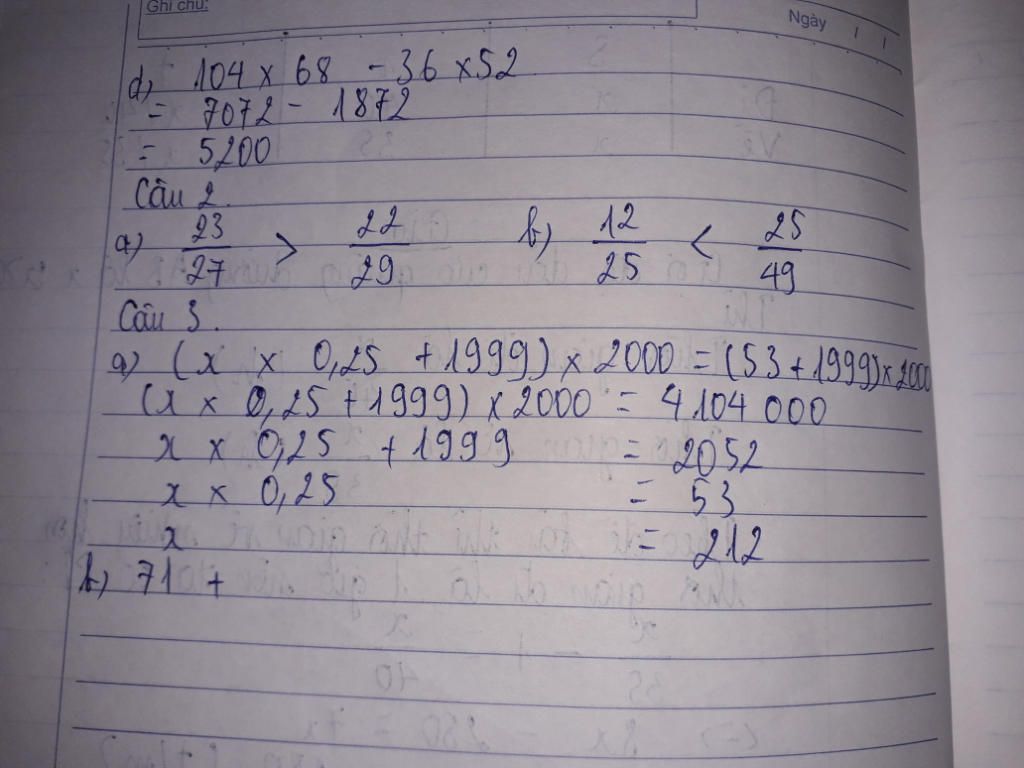 Ghi chú:
Ngày
d) 104 x 68 - 36 x 52
= 7072 - 1872
= 5200
Câu 2.
a) 23/27 > 22/29 b) 12/25 < 25/49
Câu 3.
a) (x x 0,25 + 1999) x 2000 = (53 + 1999) x 2000
(x x 0,25 + 1999) x 2000 = 4104 000
x x 0,25 + 1999 = 2052
x x 0,25 = 53
x = 212
b) 71 +